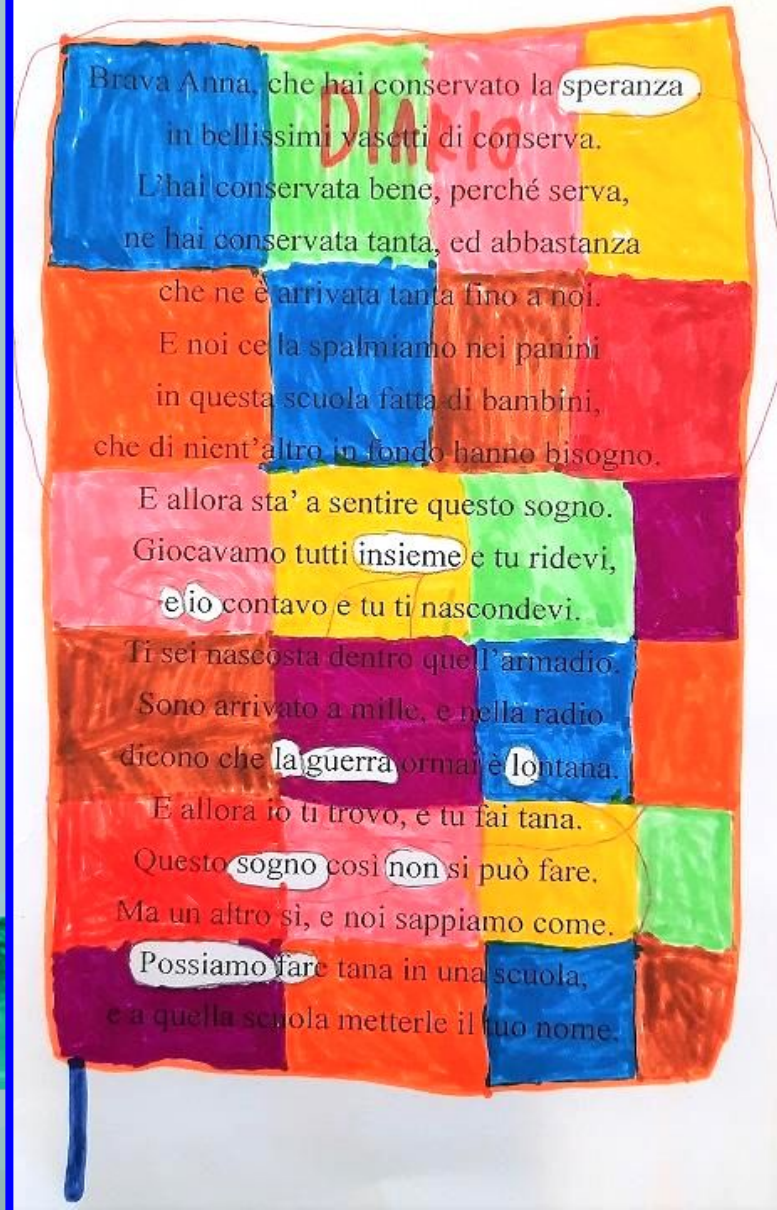 Brava Anna, che hai conservato la speranza,
DIARIO
in bellissimi vasetti di conserva.
L'hai conservata bene, perché serva,
ne hai conservata tanta, ed abbastanza
che ne è arrivata tanta fino a noi.
E noi ce la spalmiamo nei panini
in questa scuola fatta di bambini,
che di nient'altro in fondo hanno bisogno.
E allora sta' a sentire questo sogno.
Giocavamo tutti insieme e tu ridevi,
e io contavo e tu ti nascondevi.
Ti sei nascosta dentro quell'armadio.
Sono arrivato a mille, e nella radio
dicono che la guerra ormai è lontana.
E allora io ti trovo, e tu fai tana.
Questo sogno così non si può fare.
Ma un altro sì, e noi sappiamo come.
Possiamo fare tana in una scuola,
e a quella scuola metterle il tuo nome.